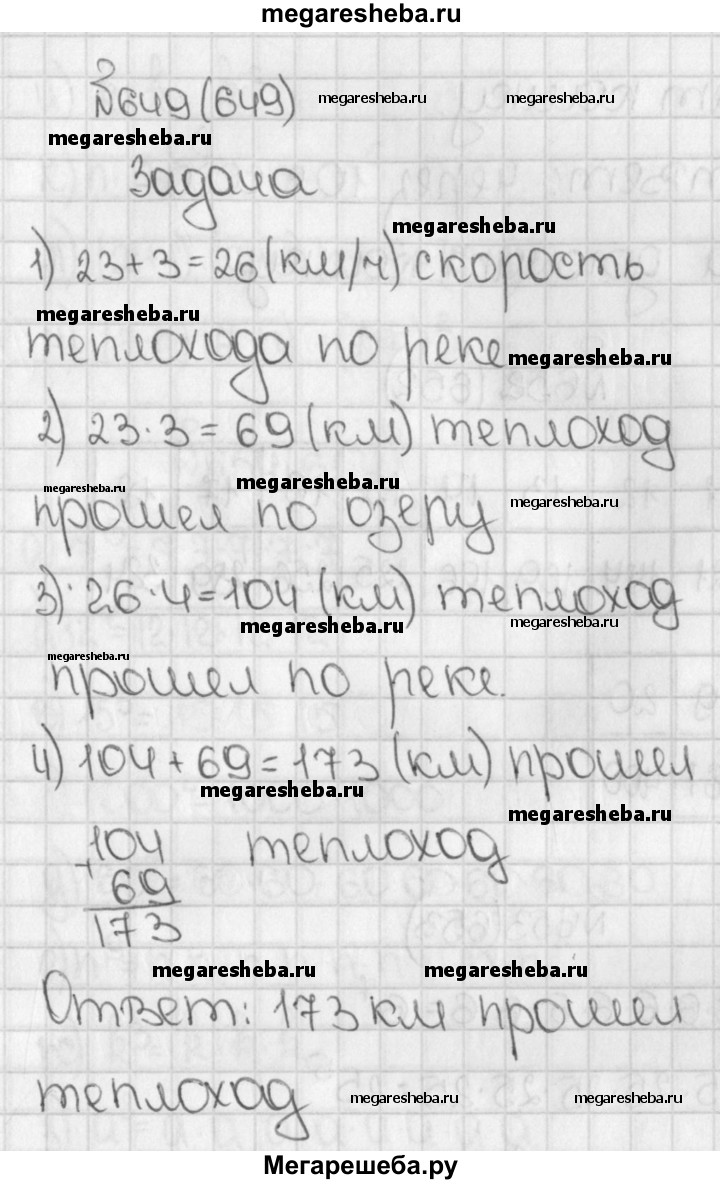 megaresheba.ru
№649 (649) megaresheba.ru megaresheba.ru
megaresheba.ru
Задача
megaresheba.ru
1) 23+3=26 (км/ч) скорость
megaresheba.ru
теплохода по реке megaresheba.ru
2) 23·3=69 (км) теплоход
megaresheba.ru megaresheba.ru
прошел по озеру megaresheba.ru
3) 26·4=104 (км) теплоход
megaresheba.ru megaresheba.ru
megaresheba.ru
прошел по реке.
4) 104+69=173 (км) прошел
megaresheba.ru
megaresheba.ru
104 теплоход
+ 69
173
megaresheba.ru megaresheba.ru
Ответ: 173 км прошел
теплоход megaresheba.ru megaresheba.ru
Мегарешеба.ру